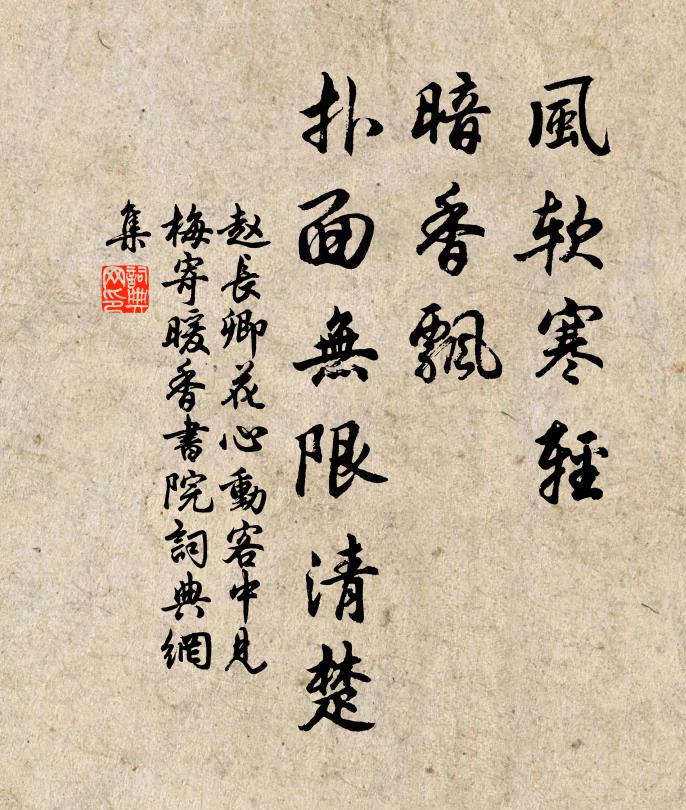 風軟寒輕
暗香飄
扑面無限清楚
赵長卿花心動客中見
梅寄暖香書院詞典網
集
詞典
网印